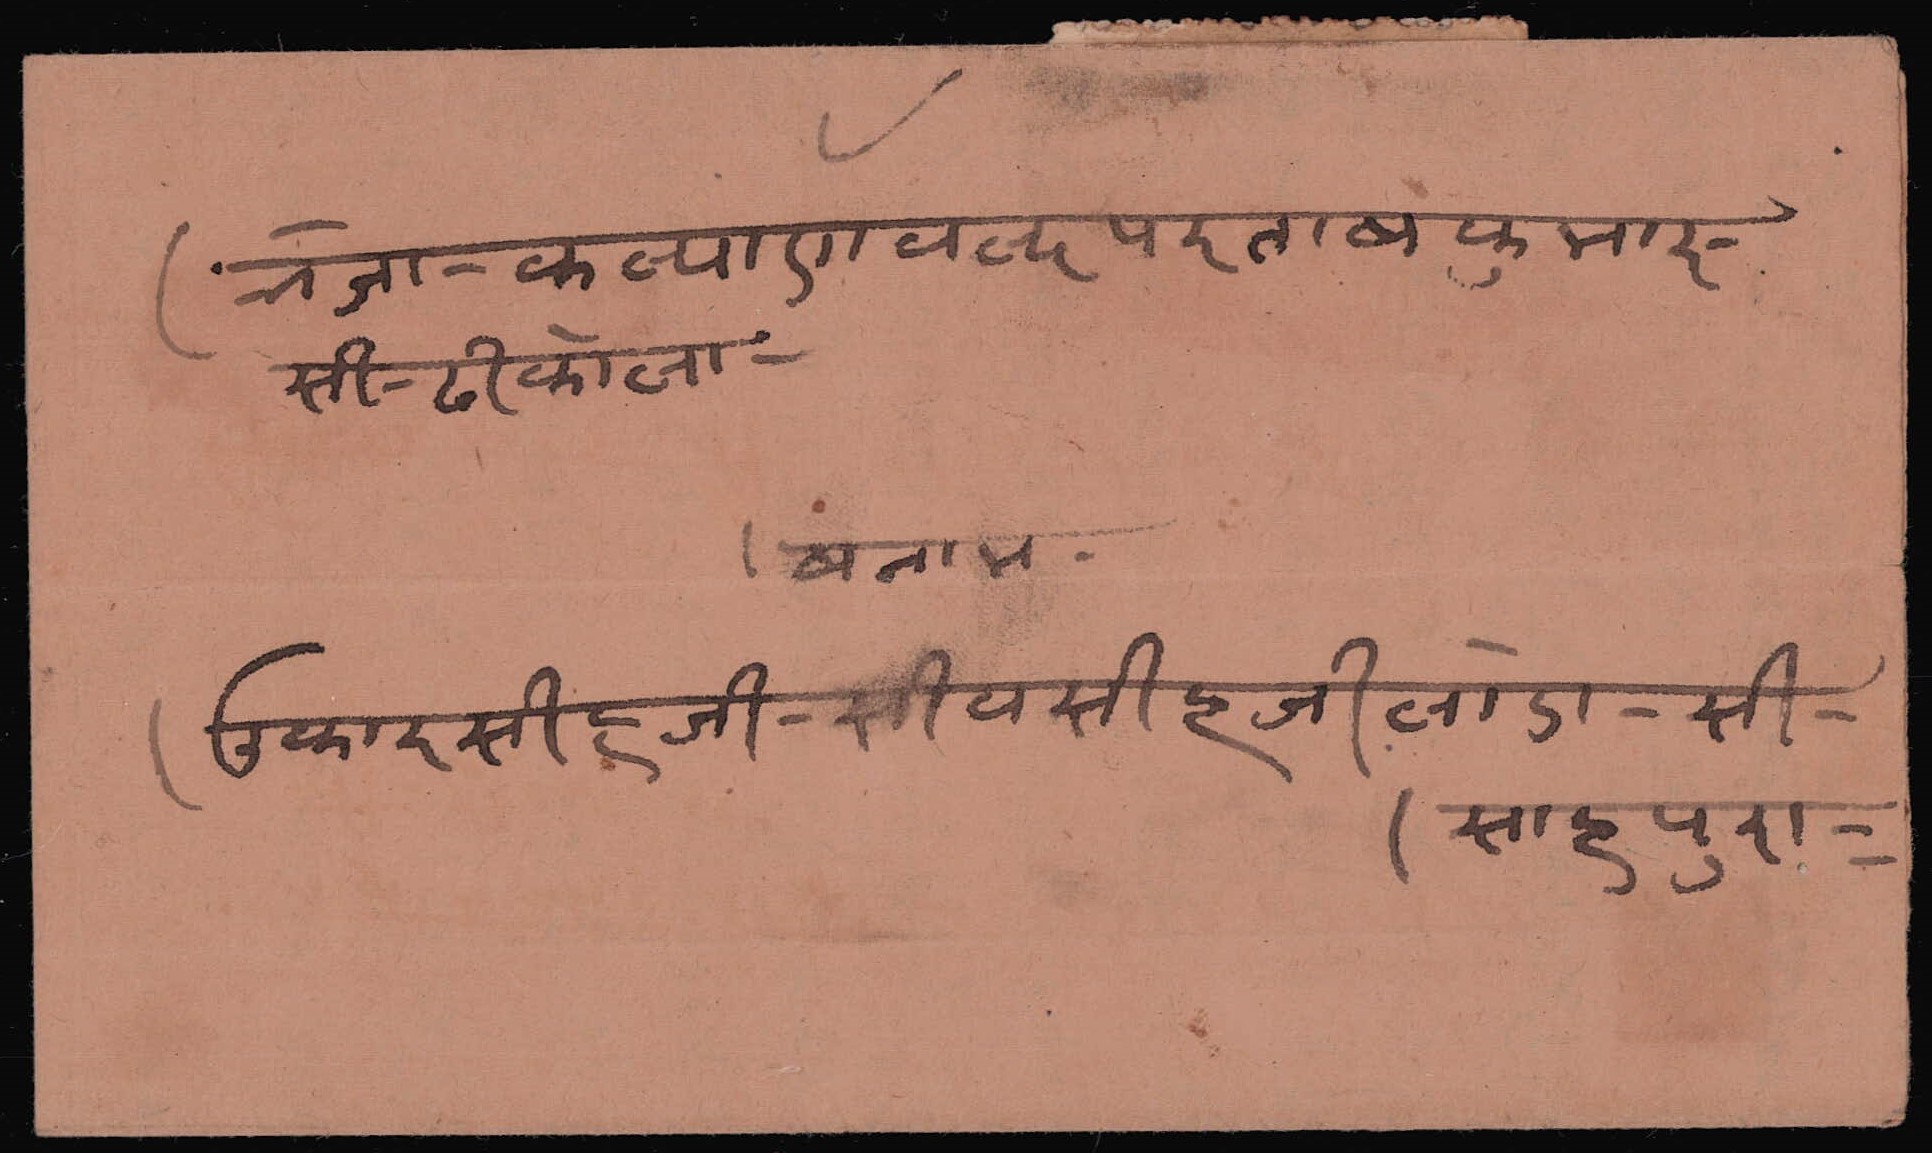 नेजा - कल्याण वल्द परताब कुमार
सी - ढीकोला -
बनाम -
उकारसीहजी - सीवसीहजी लोडा - सी -
साहपुरा =